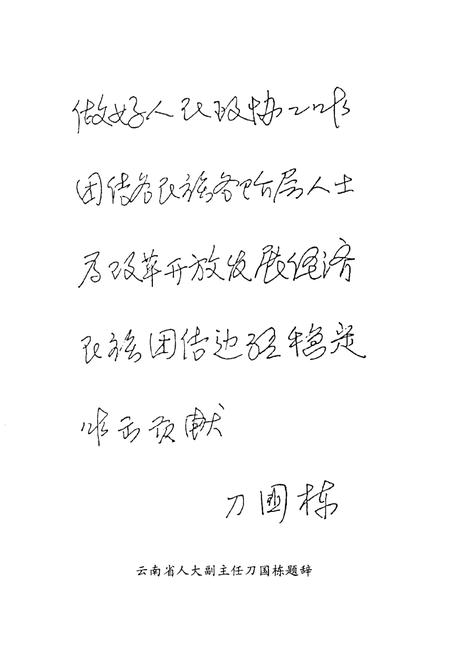 做好人民政协工作
团结各民族各阶层人士
为改革开放发展经济
民族团结边疆稳定
作出贡献
刀国栋
云南省人大副主任刀国栋题辞